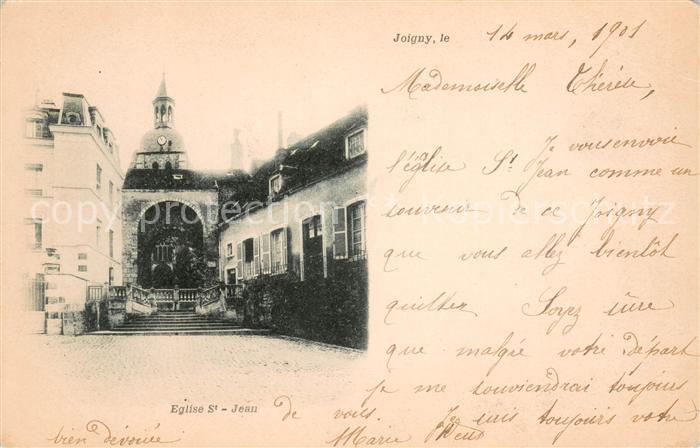 Joigny, le 14 mars, 1901
Mademoiselle Thérèse,
Je vous envoie
l'église St Jean comme un
souvenir de ce Joigny
que vous allez bientôt
quitter Soyez sûre
que malgré votre départ
je me souviendrai toujours
Eglise St - Jean
de vous. Je suis toujours votre
bien dévouée Marie
copyright passionforpostcards